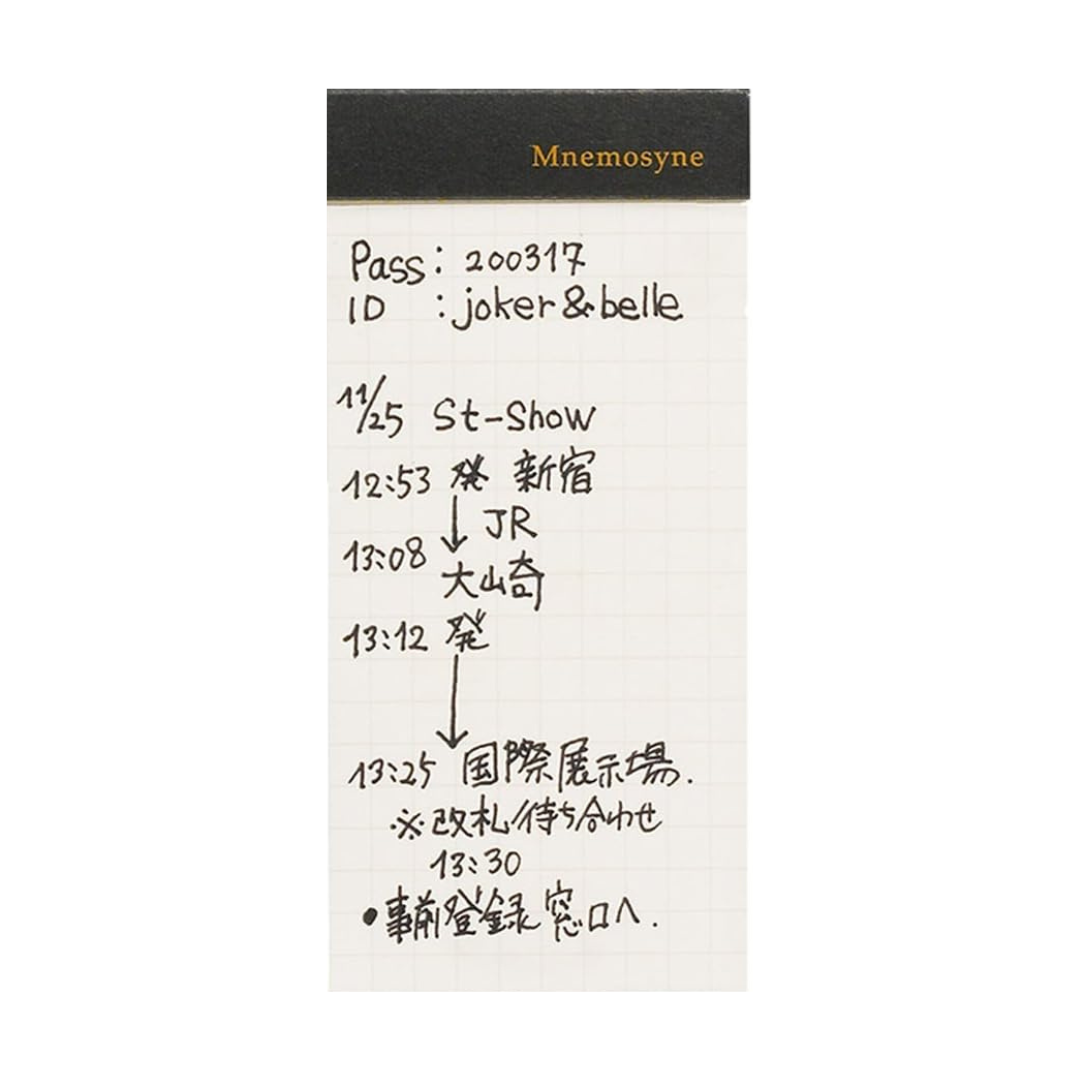 Mnemosyne
Pass: 200317
ID :joker&belle
11/25 St-Show
12:53 発 新宿
↓ JR
13:08
大崎
13:12 発
↓
13:25 国際展示場.
※改札待ち合わせ
13:30
•事前登録窓口へ.